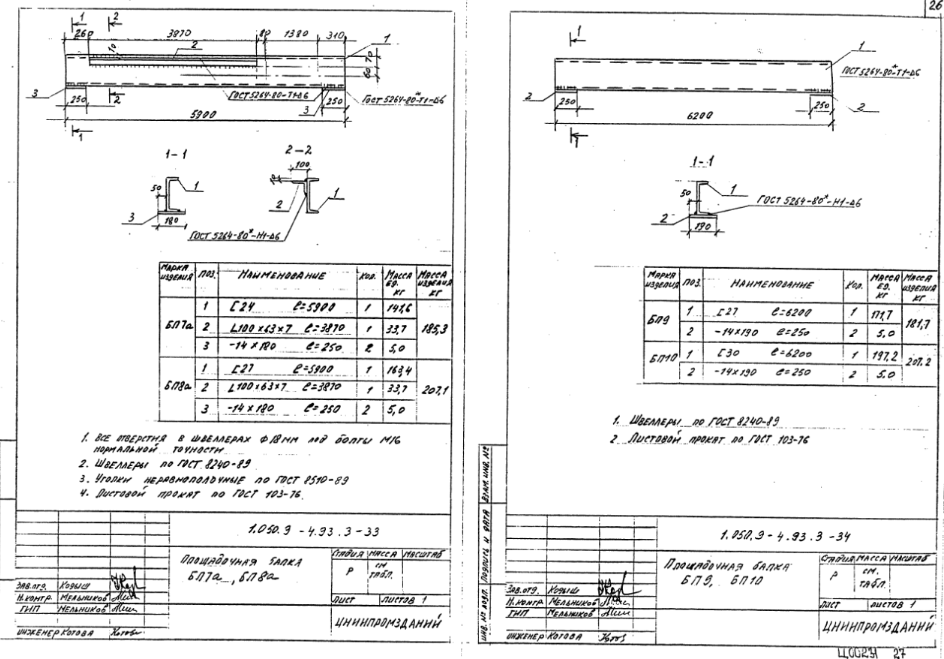 26
1
2
260
3870
80
1380
310
10
2
1
70
60
3
ГОСТ 5264-80-Т1-Δ6
ГОСТ 5264-80*-Т1-Δ6
250
2
3
250
5900
1
1-1
2-2
50
1
3
180
100
2
1
ГОСТ 5264-80*-Н1-Δ6
МАРКА ИЗДЕЛИЯ ПОЗ. НАИМЕНОВАНИЕ КОЛ. МАССА ЕД. КГ МАССА ИЗДЕЛИЯ КГ
БП7а 1 [24 ℓ=5900 1 141,6 185,3
2 L100×63×7 ℓ=3870 1 33,7
3 -14×180 ℓ=250 2 5,0
БП8а 1 [27 ℓ=5900 1 163,4 207,1
2 L100×63×7 ℓ=3870 1 33,7
3 -14×180 ℓ=250 2 5,0
1. ВСЕ ОТВЕРСТИЯ В ШВЕЛЛЕРАХ Ф18ММ ПОД БОЛТЫ М16
НОРМАЛЬНОЙ ТОЧНОСТИ
2. ШВЕЛЛЕРЫ ПО ГОСТ 8240-89
3. УГОЛКИ НЕРАВНОПОЛОЧНЫЕ ПО ГОСТ 8510-89
4. ЛИСТОВОЙ ПРОКАТ ПО ГОСТ 103-76.
1.050.9-4.93.3-33
ПЛОЩАДОЧНАЯ БАЛКА
БП7а, БП8а
СТАДИЯ МАССА МАСШТАБ
Р СМ. ТАБЛ.
ЛИСТ ЛИСТОВ 1
ЦНИИПРОМЗДАНИЙ
ЗАВ.ОТД. КОДЫШ
Н.КОНТР МЕЛЬНИКОВ
ГИП МЕЛЬНИКОВ
ИНЖЕНЕР КОТОВА
1
1
ГОСТ 5264-80*-Т1-Δ6
2
250
250
2
6200
1
1-1
50
1
ГОСТ 5264-80*-Н1-Δ6
2
190
МАРКА ИЗДЕЛИЯ ПОЗ. НАИМЕНОВАНИЕ КОЛ. МАССА ЕД. КГ МАССА ИЗДЕЛИЯ КГ
БП9 1 [27 ℓ=6200 1 171,7 181,7
2 -14×190 ℓ=250 2 5,0
БП10 1 [30 ℓ=6200 1 197,2 207,2
2 -14×190 ℓ=250 2 5,0
1. ШВЕЛЛЕРЫ ПО ГОСТ 8240-89
2. ЛИСТОВОЙ ПРОКАТ ПО ГОСТ 103-76
1.050.9-4.93.3-34
ПЛОЩАДОЧНАЯ БАЛКА
БП9, БП10
СТАДИЯ МАССА МАСШТАБ
Р СМ. ТАБЛ.
ЛИСТ ЛИСТОВ 1
ЦНИИПРОМЗДАНИЙ
ЗАВ.ОТД. КОДЫШ
Н.КОНТР МЕЛЬНИКОВ
ГИП МЕЛЬНИКОВ
ИНЖЕНЕР КОТОВА
ИНВ. № ПОДЛ. ПОДПИСЬ И ДАТА ВЗАМ. ИНВ. №
Ц00231 27